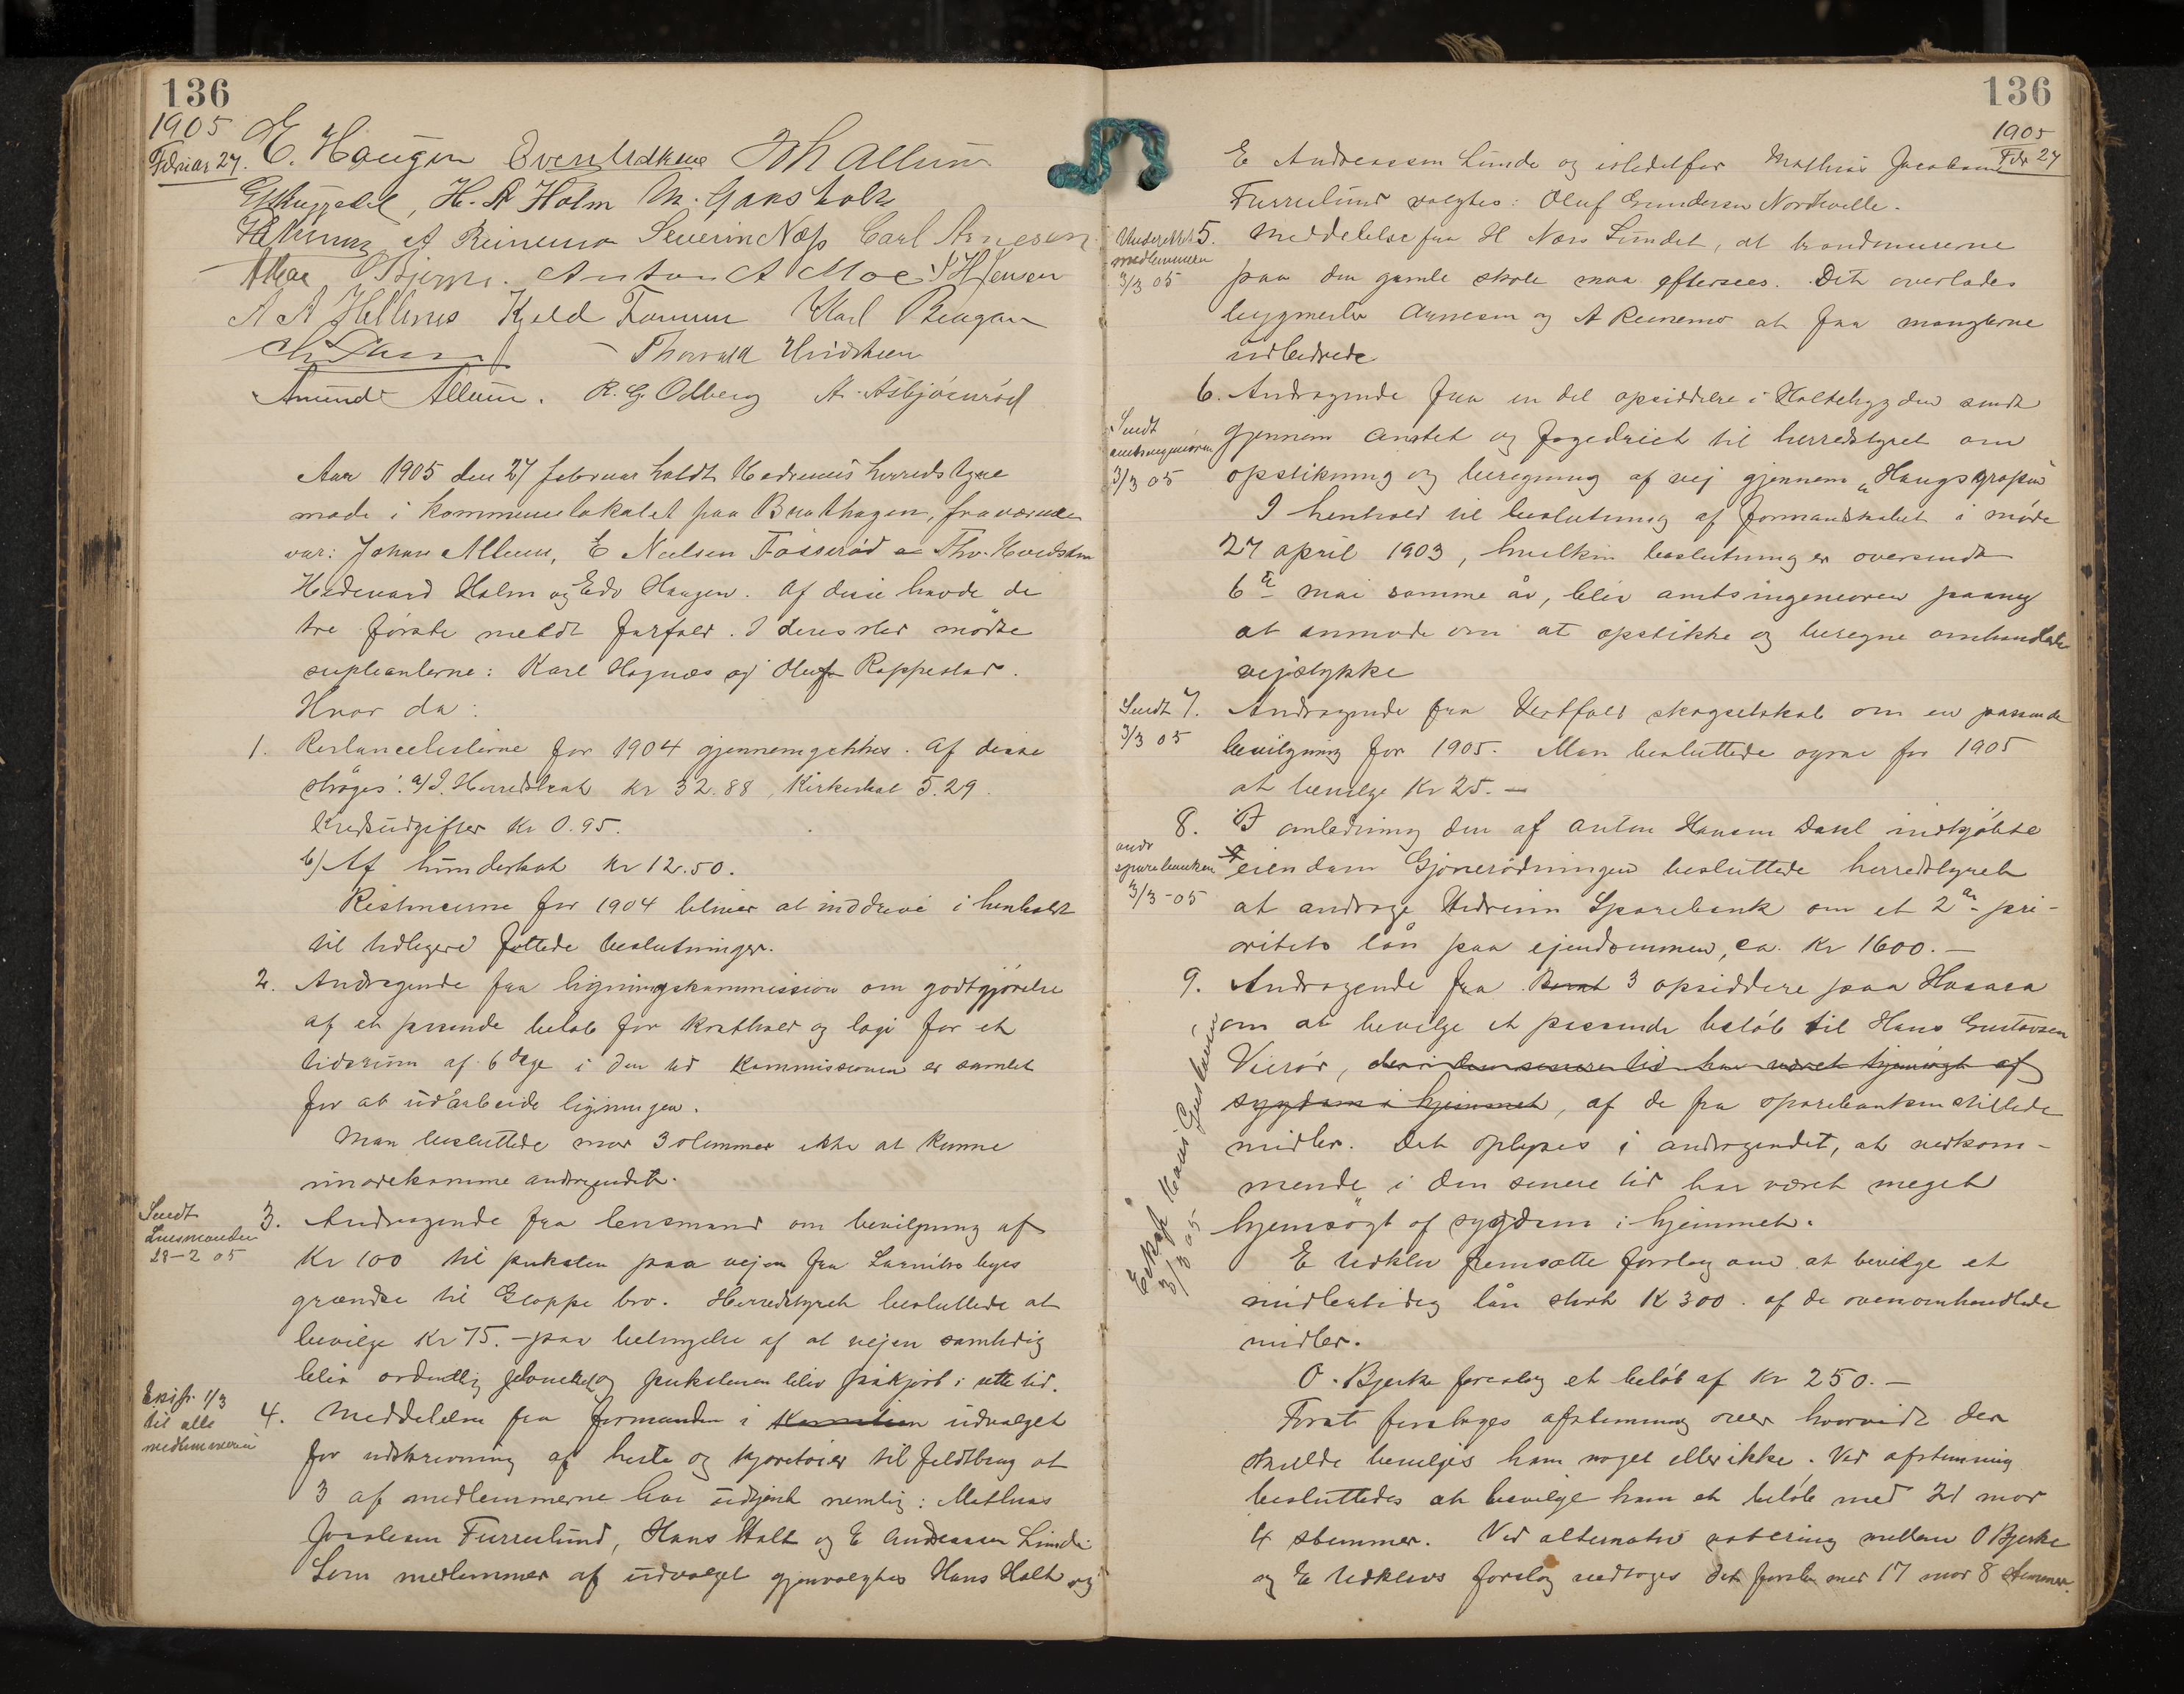 136
1905
Februar 27.
E. Haugen Joh Allum
H. A Holm M. Gansholt
A Reinemo Severin Næss Carl Arnesen
A Moe O Bjerke. Anton A Moe S H Jensen
A A Hellenes Kjeld Fomm Karl
Thorvald Hvidsteen
Amund Allum. R. G. Odberg A. Asbjörnröd
Aar 1905 den 27 februar holdt Hedrums herredstyre
møde i kommunelokalet paa Brathagen, fraværende
var: Johan Allum, E Nielsen Fosserød Thv. Hvidsten
Hedevard Holm og Edv Haugen. Af disse havde de
tre første meldt forfald. I deres sted mødte
supleanterne: Karl Hognæs og Oluf Rappestad.
Hvor da:
1. Restancelisterne for 1904 gjennemgikkes. Af disse
strøges: a/ Herredskat kr 32.88, Kirkeskat 5.29.
Kredsudgifter Kr 0.95.
b) Af hundeskat kr 12.50.
Restancerne for 1904 bliver at inddrive i henhold
til tidligere fattede beslutninger.
2. Andragende fra ligningskommission om godtgjørelse
af et passende beløb for kosthold og logi for et
tidsrum af 6 dage i den tid Kommissionen er samlet
for at udarbeide ligningen.
Man besluttede mod 3 stemmer ikke at kunne
imødekomme andragendet.
Sendt
Lensmanden
28-2 05
3. Andragende fra lensmand om bevilgning af
Kr 100 til puksten paa vejen fra Laurviks byes
grændse til Gloppe bro. Herredstyret besluttede at
bevilge Kr 75.- paa betingelse af at vejen samtidig
bliv ordentlig og pukstenen bliv påkjørt i rette tid.
Exp. 1/3
til alle
medlemmerne
4. Meddelelse fra formanden i udvalget
for udskrivning af heste og kjøretøier til feldtbrug at
3 af medlemmerne har udtjent nemlig: Mathias
Jacobsen Furrulund, Hans Holt og E Andreassen Lunde
Som medlemmer af udvalget gjenvalgtes Hans Holt og
136
1905
Febr 27
E Andreassen Lunde og istedetfor Mathias Jacobsen
Furrulund valgtes: Oluf Gundersen Nordkvelle.
Underrettet
medlemmerne
3/3 05
5. Meddelelse fra H Næss Sundet, at brandmurerne
paa den gamle skole maa eftersees. Det overlades
bygmester Arnesen og A Reinemo at faa manglerne
udbedrede
6. Andragende fra en del opsiddere i Holtebygden sendt
Sendt
amtsingeniøren
3/3 05
gjennem amtet og fogedriet til herredstyret om
opstikning og beregning af vej gjennem "Haugsgropa"
I henhold til beslutning af formandskabet i møde
27 april 1903, hvilken beslutning er oversendt
6te mai samme år, bliv amtsingeniøren paany
at anmode om at opstikke og beregne omhandlede
vejstykke
Sendt
3/3 05
7. Andragende fra Vestfold skogselskab om en passende
bevilgning for 1905. Man besluttede ogsaa for 1905
at bevilge Kr 25.—
8. I anledning den af Anton Hansen Dahl indkjøbte
andr
sparebanken
3/3-05
eiendom Gjønerødningen besluttede herredstyret
at andrage Hedrum Sparebank om et 2den pri-
oritets lån paa ejendommen, ca. Kr 1600.—
9. Andragende fra 3 opsiddere paa Haaara
om at bevilge et passende beløb til Hans Gustavsen
Vierød, der i den senere tid har været hjemsøgt af
sygdom i hjemmet, af de fra sparebanken stillede
midler. Det oplyses i andragendet, at vedkom-
mende i den senere tid har været meget
hjemsøgt af sygdom i hjemmet.
Exp. Hans Gustavsen
3/3 05
E Udklev fremsatte forslag om at bevilge et
midlertidig lån stort K 300. af de ovenomhandlede
midler.
O. Bjerke foreslog et beløb af Kr 250.—
Først foretoges afstemning over hvorvidt der
skulde bevilges ham noget eller ikke. Ved afstemning
besluttedes at bevilge ham et beløb med 21 mod
4 stemmer. Ved alternativ votering mellem O Bjerke
og E Udklevs forslag vedtoges det første med 17 mod 8 stemmer.